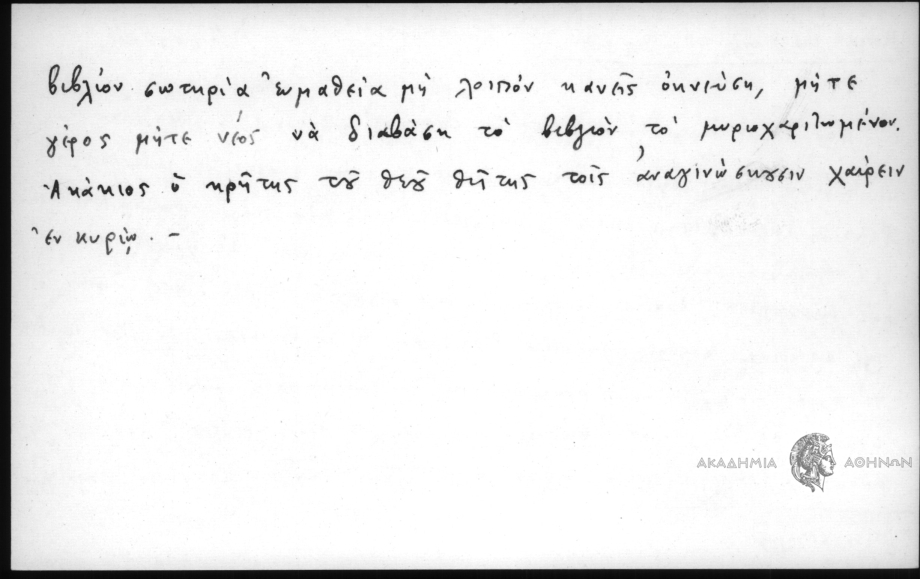 βιβλίον σωτηρία ἐυμαθεία μὴ λοιπόν κανεῖς ὀκνεύση, μήτε
γέρος μήτε νέος νὰ διαβάση τὸ βιβλιὸν τὸ μυριοχαριτωμένον.
Ἀκάκιος ὁ κρῆτης τοῦ θεοῦ θῆτης τοῖς ἀναγινώσκουσιν χαίρειν
ἐν κυρίῳ. –
ΑΚΑΔΗΜΙΑ ΑΘΗΝΩΝ